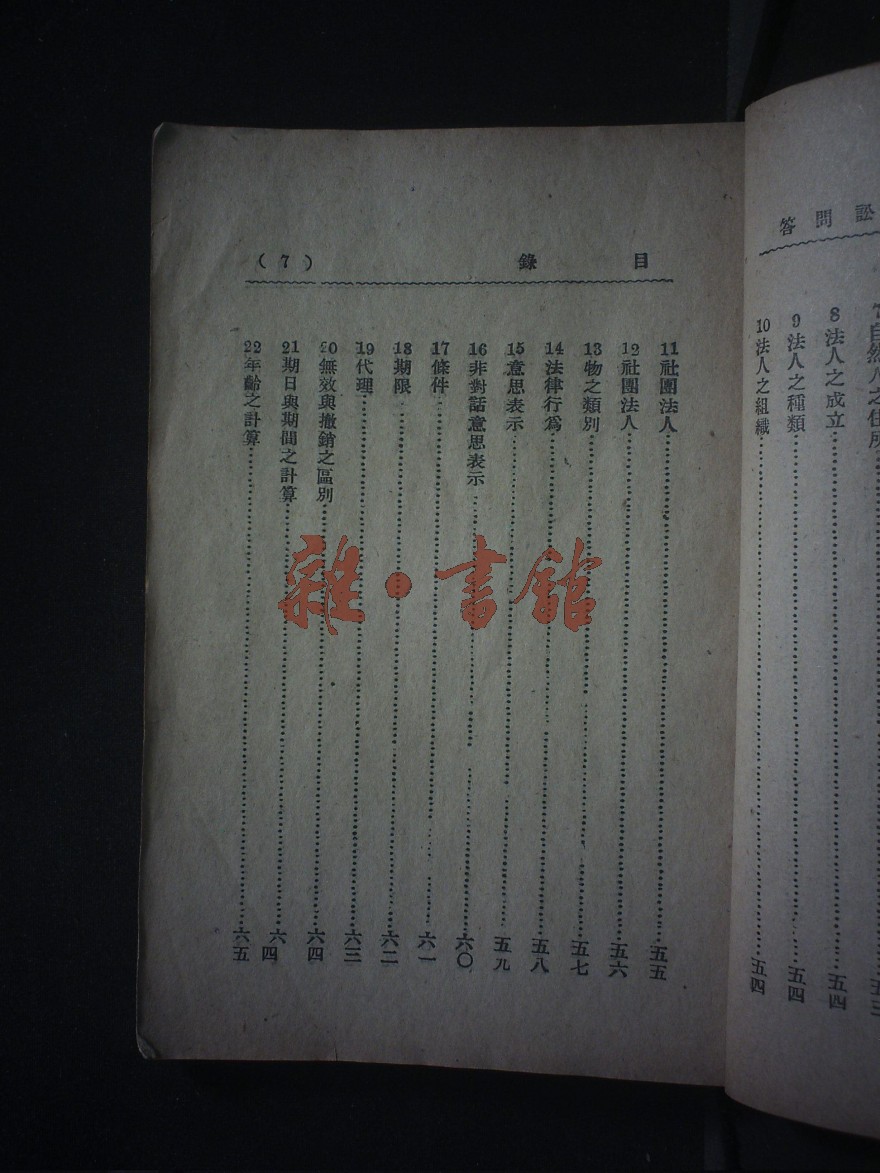 訟問答
7自然人之住所……五三
8法人之成立……五四
9法人之種類……五四
10法人之組織……五四
目錄 (7)
11社團法人……五五
12社團法人……五六
13物之類別……五七
14法律行為……五八
15意思表示……五九
16非對話意思表示……六〇
17條件……六一
18期限……六二
19代理……六三
20無效與撤銷之區別……六四
21期日與期間之計算……六四
22年齡之計算……六五
雜·書館